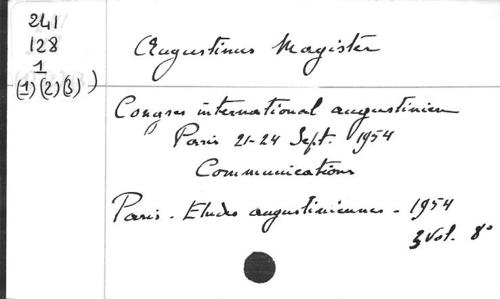 241
128
1
(1)(2)(3))
Augustinus Magister
Congres international augustinien
Paris 21-24 Sept. 1954
Communications
Paris - Etudes augustiniennes - 1954
3 Vol. 8º